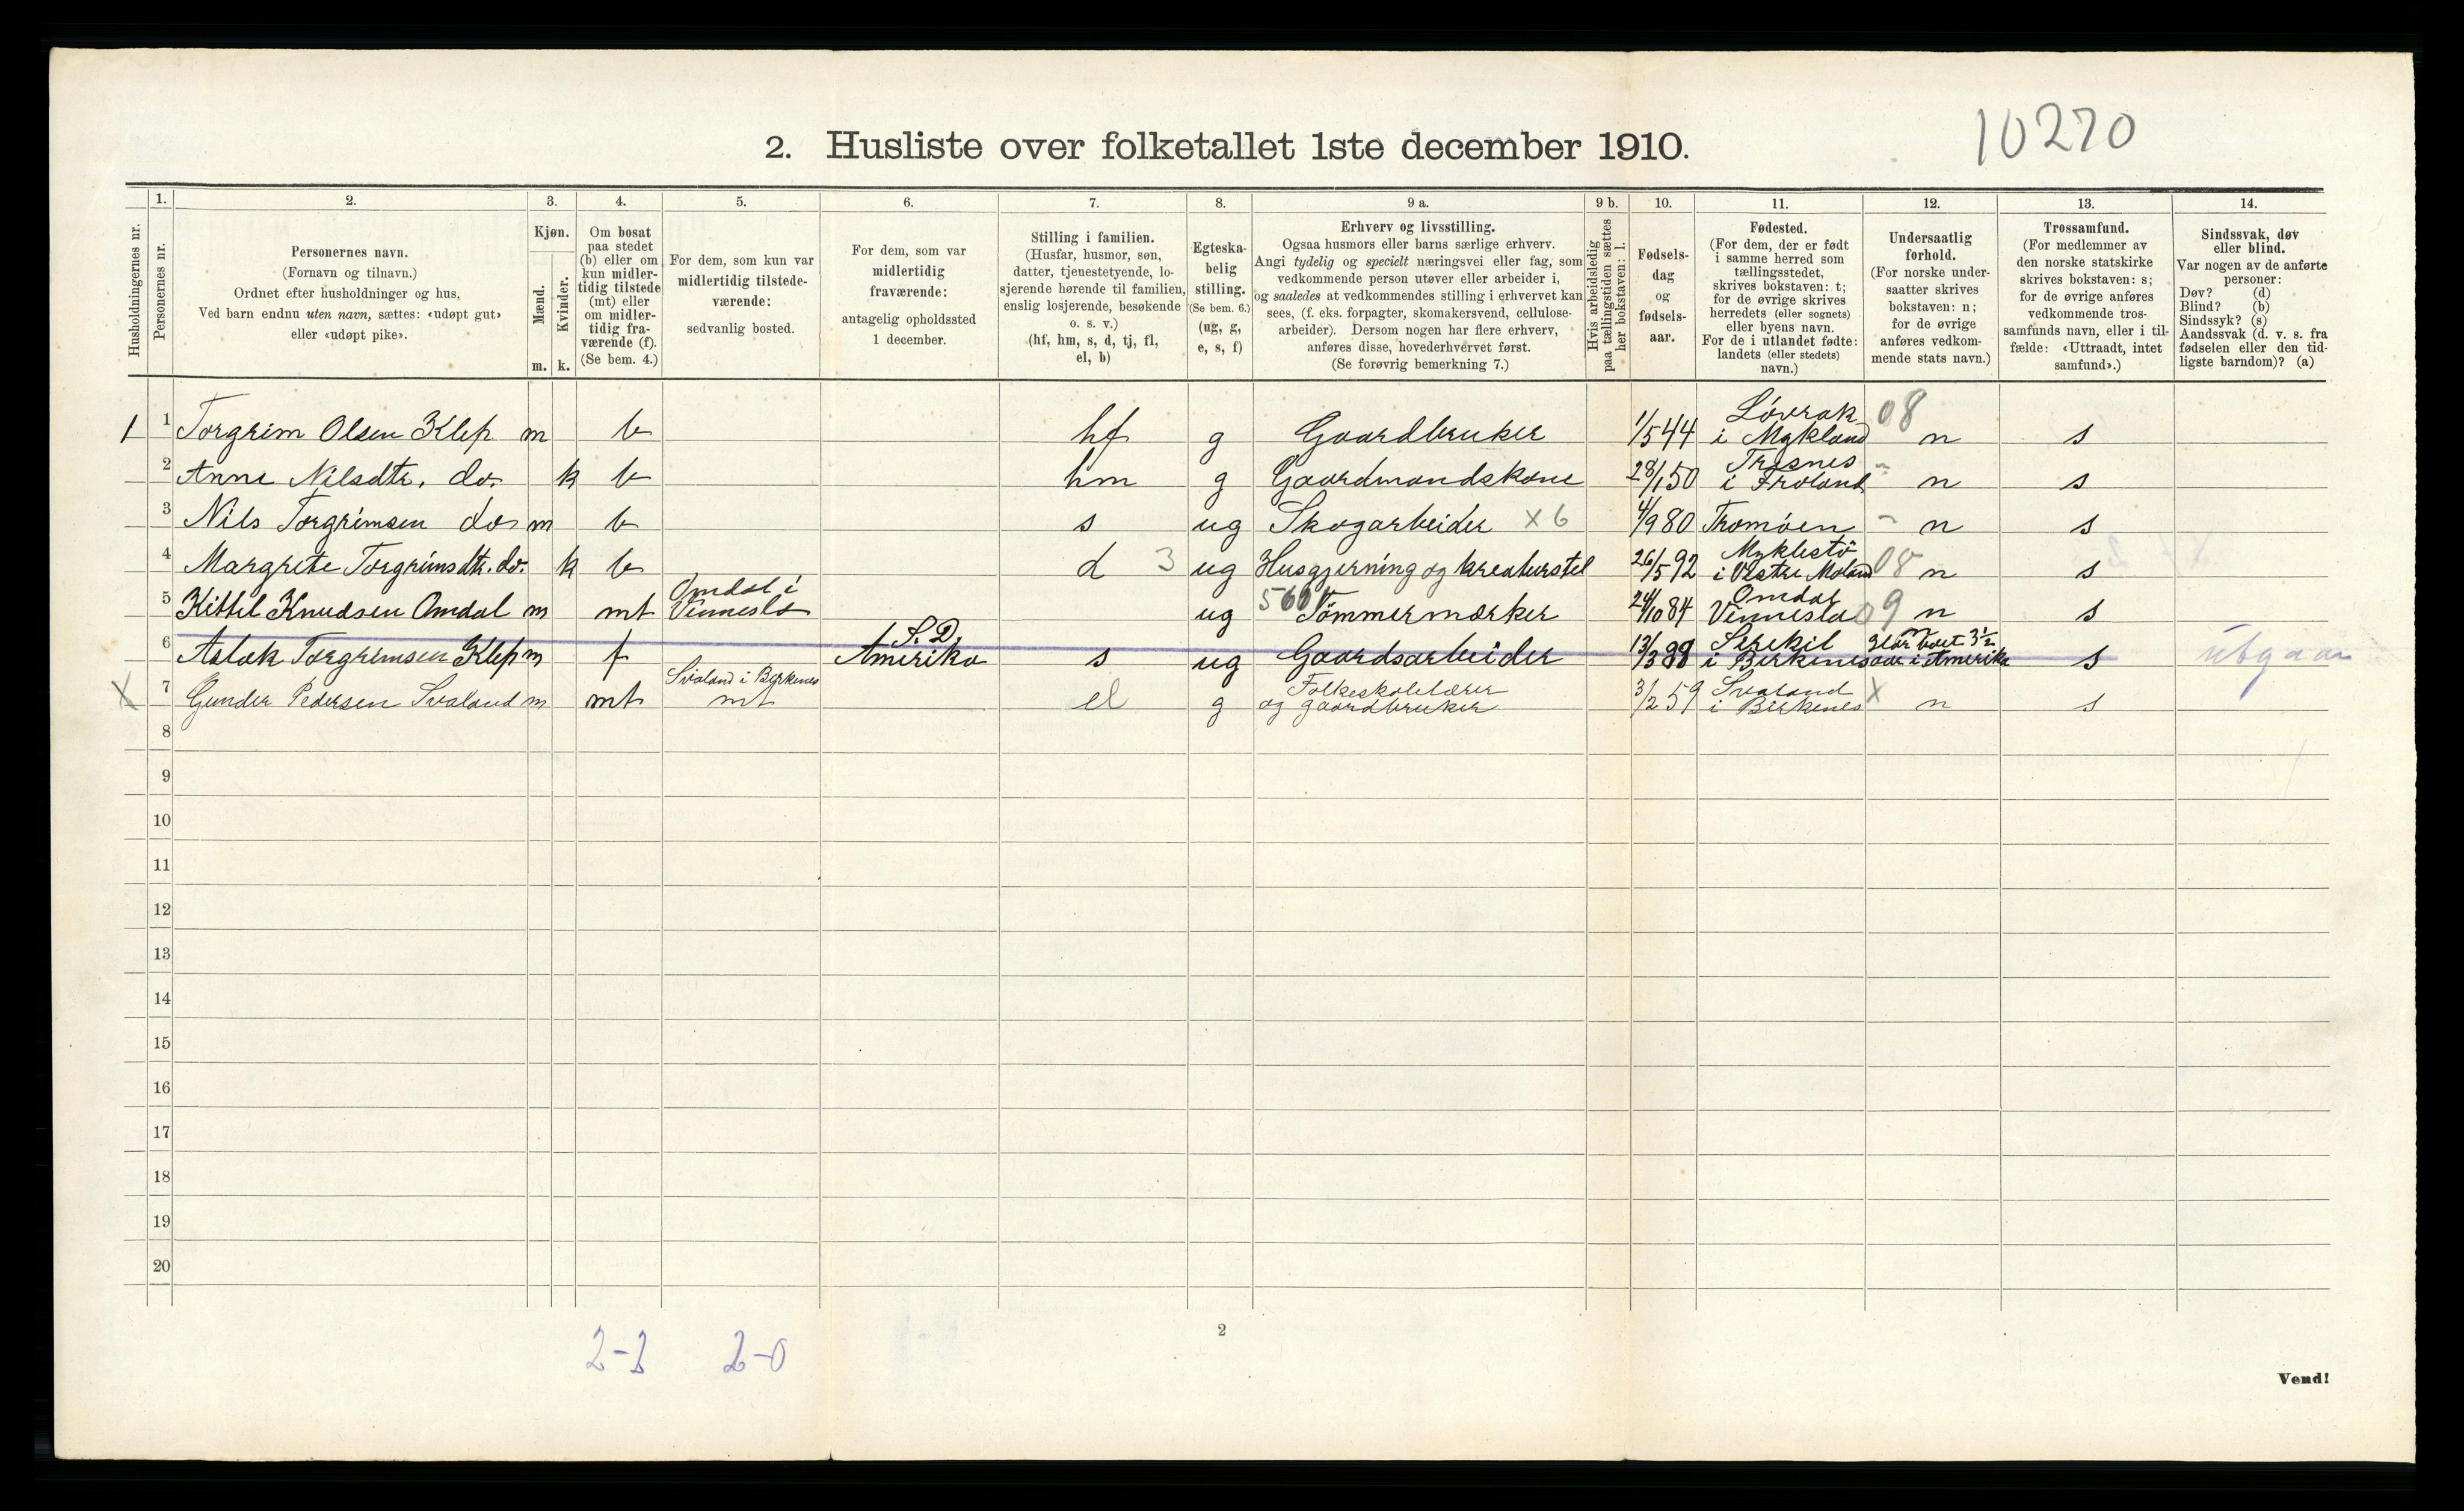 10270
2. Husliste over folketallet 1ste december 1910.
Husholdningernes nr.
1. Personernes nr.
2. Personernes navn. (Fornavn og tilnavn.) Ordnet efter husholdninger og hus, Ved barn endnu uten navn, sættes: «udøpt gut» eller «udøpt pike».
3. Kjøn. Mænd. m. Kvinder. k.
4. Om bosat paa stedet (b) eller om kun midlertidig tilstede (mt) eller om midlertidig fraværende (f). (Se bem. 4.)
5. For dem, som kun var midlertidig tilstedeværende: sedvanlig bosted.
6. For dem, som var midlertidig fraværende: antagelig opholdssted 1 december.
7. Stilling i familien. (Husfar, husmor, søn, datter, tjenestetyende, losjerende hørende til familien, enslig losjerende, besøkende o. s. v.) (hf, hm, s, d, tj, fl, el, b)
8. Egteskabelig stilling. (Se bem. 6.) (ug, g, e, s, f)
9 a. Erhverv og livsstilling. Ogsaa husmors eller barns særlige erhverv. Angi tydelig og specielt næringsvei eller fag, som vedkommende person utøver eller arbeider i, og saaledes at vedkommendes stilling i erhvervet kan sees, (f. eks. forpagter, skomakersvend, cellulosearbeider). Dersom nogen har flere erhverv, anføres disse, hovederhvervet først. (Se forøvrig bemerkning 7.)
9 b. Hvis arbeidsledig paa tællingstiden sættes her bokstaven: l.
10. Fødselsdag og fødselsaar.
11. Fødested. (For dem, der er født i samme herred som tællingsstedet, skrives bokstaven: t; for de øvrige skrives herredets (eller sognets) eller byens navn. For de i utlandet fødte: landets (eller stedets) navn.)
12. Undersaatlig forhold. (For norske undersaatter skrives bokstaven: n; for de øvrige anføres vedkommende stats navn.)
13. Trossamfund. (For medlemmer av den norske statskirke skrives bokstaven: s; for de øvrige anføres vedkommende trossamfunds navn, eller i tilfælde: «Uttraadt, intet samfund».)
14. Sindssvak, døv eller blind. Var nogen av de anførte personer: Døv? (d) Blind? (b) Sindssyk? (s) Aandssvak (d. v. s. fra fødselen eller den tidligste barndom)? (a)
1 1 Torgrim Olsen Klep m b hf g Gaardbruker 1/5 44 Løvrak i Mykland 08 n s
2 Anne Nilsdtr. do. k b hm g Gaardmandskone 28/1 50 Tresnes i Froland - n s
3 Nils Torgrimsen do m b s ug Skogarbeider x6 4/9 80 Tromøen - n s
4 Margrete Torgrimsdtr. do. k b d 3 ug Husgjerning og kreaturstel 26/5 92 Myklestø i Vestre Moland 08 n s
5 Kittil Knudsen Omdal m mt Omdal i Vennesla ug Tømmermærker 24/10 84 Omdal Vennesla 09 n s
6 Aslak Torgrimsen Klep m f S. D. Amerika s ug Gaardsarbeider 13/3 88 i Birkenes n Har boet 3 1/2 aar i Amerika s utgaar
X 7 Gunder Pedersen Svaland m mt Svaland i Birkenes mt el g Folkeskolelærer og gaardbruker 3/2 59 Svaland i Birkenes X n s
8
9
10
11
12
13
14
15
16
17
18
19
20
2-2 2-0
2
Vend!